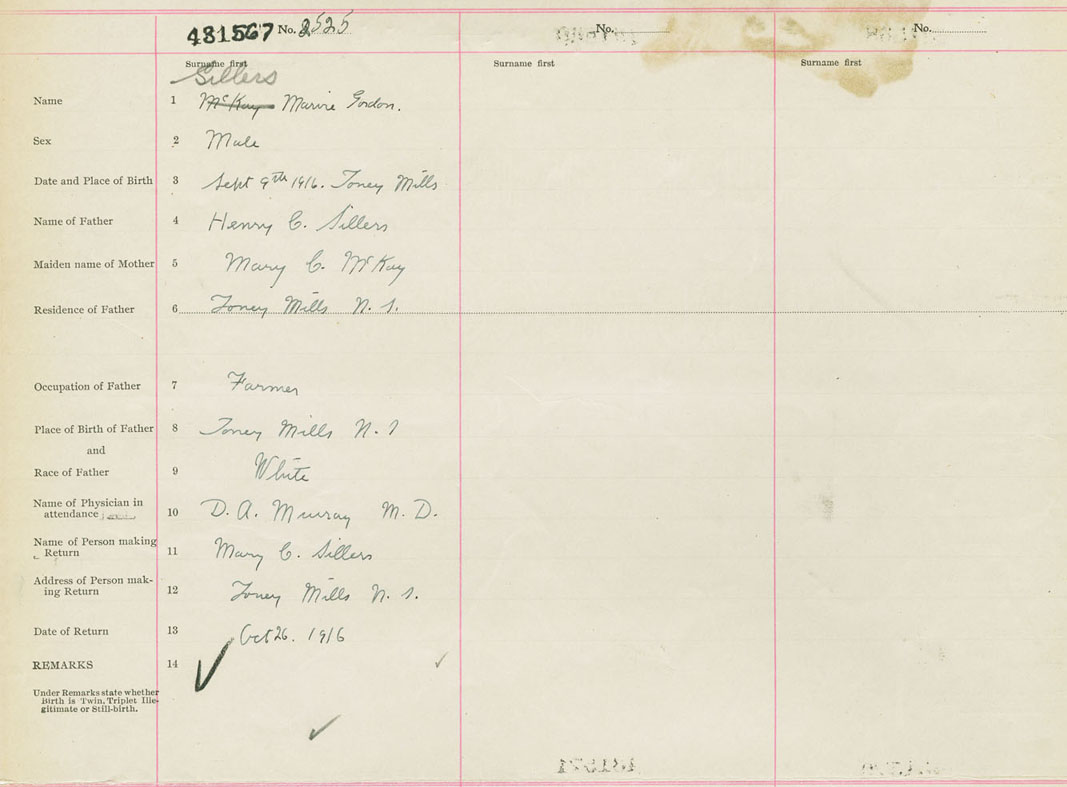 481567 No. 2525 No. No.
Surname first Surname first Surname first
Sillers
Name 1 McKay Marvie Gordon.
Sex 2 Male
Date and Place of Birth 3 Sept 9th 1916. Toney Mills
Name of Father 4 Henry C. Sillers
Maiden name of Mother 5 Mary C. McKay
Residence of Father 6 Toney Mills N. S.
Occupation of Father 7 Farmer
Place of Birth of Father 8 Toney Mills N. S
and
Race of Father 9 White
Name of Physician in
attendance 10 D. A. Murray M. D.
Name of Person making
Return 11 Mary C. Sillers
Address of Person mak-
ing Return 12 Toney Mills N. S.
Date of Return 13 Oct 26. 1916
REMARKS 14
Under Remarks state whether
Birth is Twin, Triplet Ille-
gitimate or Still-birth.